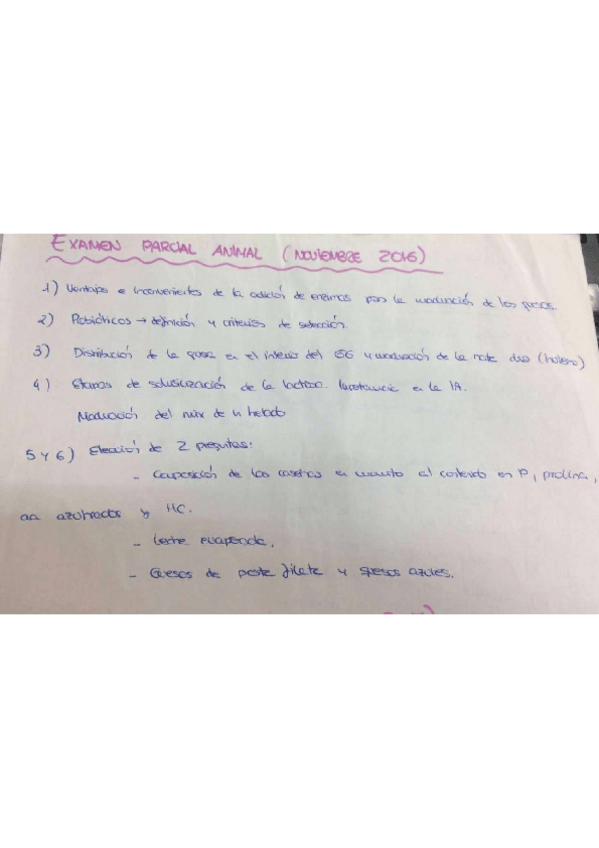 EXAMEN PARCIAL ANIMAL (NOVIEMBRE 2016)
1) Ventajas e inconvenientes de la adición de enzimas para la maduración de los quesos.
2) Probióticos → definición y criterios de selección.
3) Distribución de la grasa en el interior del GG y maduración de la nata dulce
4) Etapas de de la lactosa. en la IA.
Maduración del mix de un helado
5 y 6) Elección de 2 preguntas:
- Composición de las caseínas en cuanto al contenido en P, prolina,
aa azufrados y HC.
- Leche evaporada.
- Quesos de pasta filata y quesos azules.